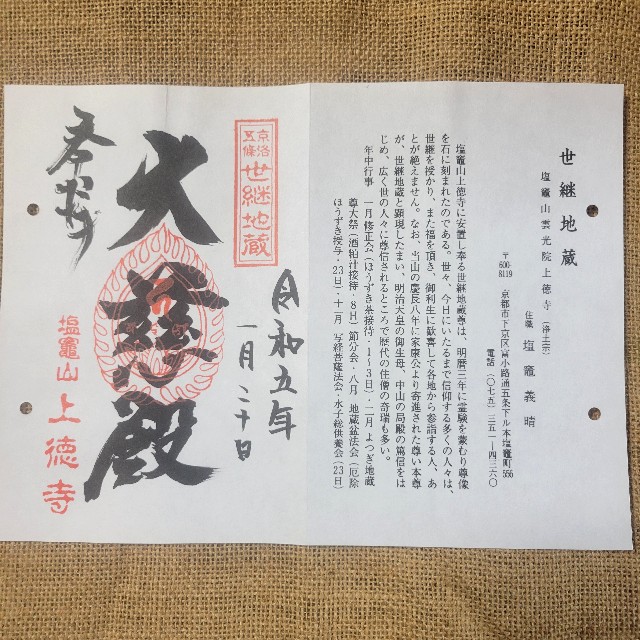 世継地蔵
塩竈山雲光院上徳寺(浄土宗)
住職 塩竈義晴
〒600-8119 京都市下京区富小路通五条下ル本塩竈町556
電話(〇七五)三五一ー四三六〇
塩竈山上徳寺に安置し奉る世継地蔵尊は、明暦三年に霊験を蒙むり尊像
を石に刻まれたのである。世々、今日にいたるまで信仰する多くの人々は、
世継を授かり、また福を頂き、御利生に歓喜して各地から参詣する人、あ
とが絶えません。なお、当山の慶長八年に家康公より寄進された尊い本尊
が、世継地蔵と顕現したまい、明治天皇の御生母、中山の局殿の篤信をは
じめ、広く世の人々に尊信されるところで歴代の住僧の奇瑞も多い。
年中行事 一月 修正会(ほうずき茶接待・1～3日)・二月 よつぎ地蔵
尊大祭(酒粕汁接待・8日)節分会・八月 地蔵盆法会(厄除
ほうずき授与・23日)・十二月 写経菩薩法会・水子総供養会(23日)
京洛五條
世継地蔵
令和五年
一月二十日
大慈殿
奉拝
塩竈山上徳寺